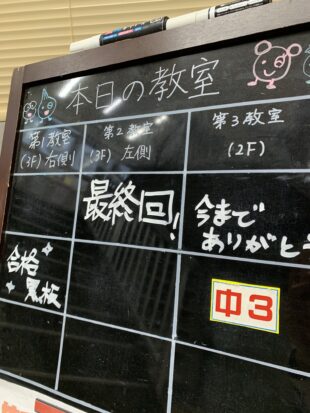 本日の教室
第1教室
(3F)右側
第2教室
(3F) 左側
第3教室
(2F)
最終回!
今まで
ありがと
合格
黒板
中3